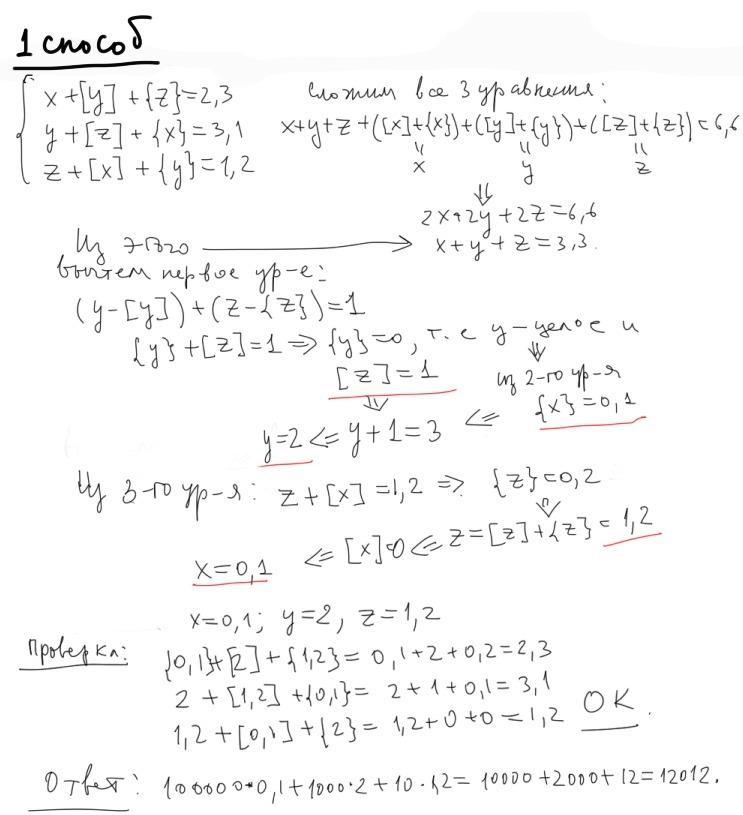 1 способ
x+[y]+{z}=2,3
y+[z]+{x}=3,1
z+[x]+{y}=1,2
сложим все 3 уравнения:
x+y+z+([x]+{x})+([y]+{y})+([z]+{z})=6,6
" " "
x y z
⇓
2x+2y+2z=6,6
Из этого → x+y+z=3,3.
вычтем первое ур-е:
(y-[y])+(z-{z})=1
{y}+[z]=1 ⇒ {y}=0, т.е y-целое и
[z]=1
⇓
из 2-го ур-я
{x}=0,1
y=2 ⇐ y+1=3 ⇐
Из 3-го ур-я: z+[x]=1,2 ⇒ {z}=0,2
⇓
x=0,1 ⇐ [x]=0 ⇐ z=[z]+{z}=1,2
x=0,1; y=2, z=1,2
Проверка: {0,1}+[2]+{1,2}=0,1+2+0,2=2,3
2+[1,2]+{0,1}=2+1+0,1=3,1
1,2+[0,1]+{2}=1,2+0+0=1,2 OK.
Ответ: 100000·0,1+1000·2+10·1,2=10000+2000+12=12012.